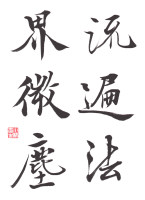 流遍法
界微塵